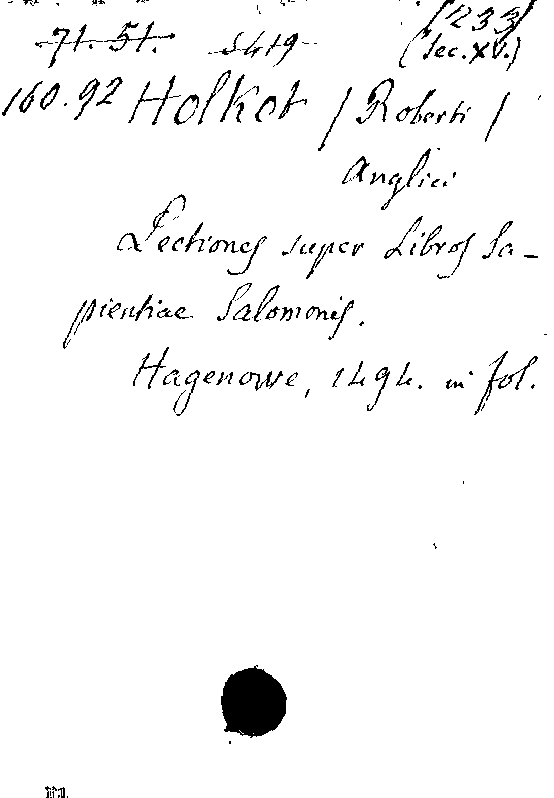 [233]
71. 51. 5419 (Sec. XV.)
160.92 Holkot / Roberti /
Anglici
Lectiones super Libros Sa-
pientiae Salomonis.
Hagenowe, 1494. in fol.